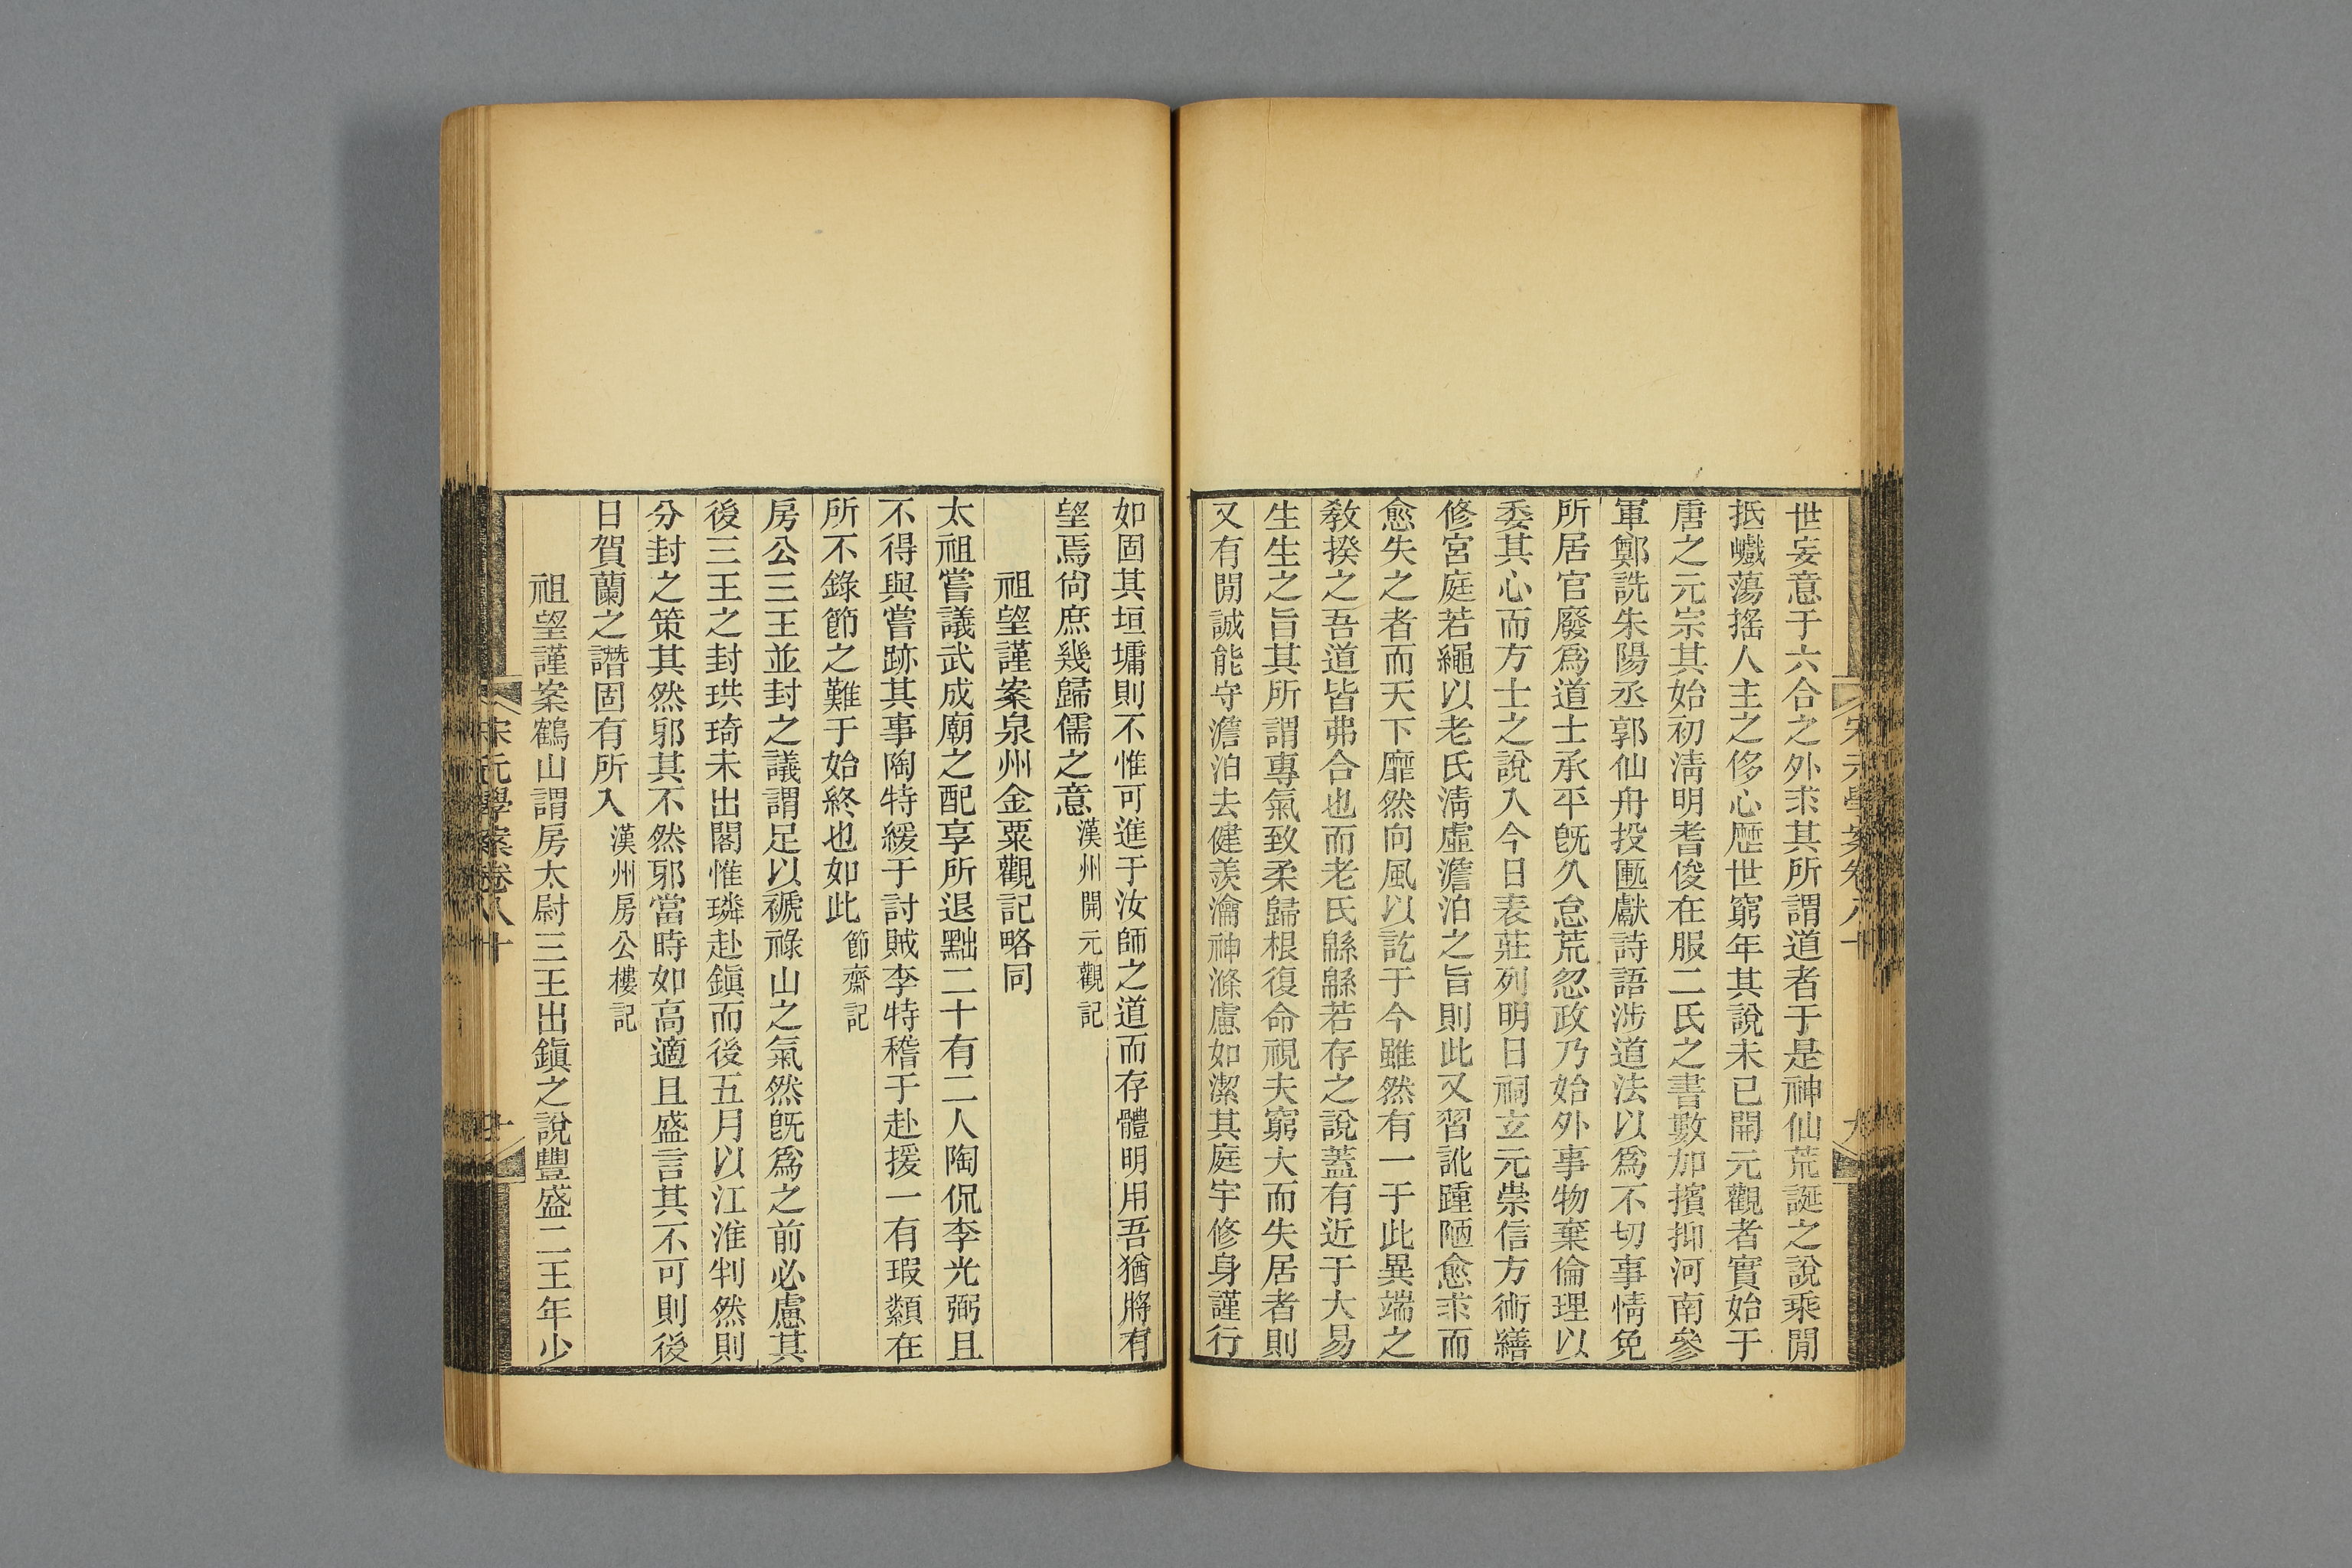 世妄意于六合之外求其所謂道者于是神仙荒誕之說乘閒
抵巇蕩搖人主之侈心歷世窮年其說未已開元觀者實始于
唐之元宗其始初淸明耆俊在服二氏之書數加擯抑河南參
軍鄭詵朱陽丞郭仙舟投匭獻詩語涉道法以爲不切事情免
所居官廢爲道士承平旣久怠荒忽政乃始外事物棄倫理以
委其心而方士之說入今日表莊列明日祠玄元崇信方術繕
修宮庭若繩以老氏淸虛澹泊之旨則此又習訛踵陋愈求而
愈失之者而天下靡然向風以訖于今雖然有一于此異端之
敎揆之吾道皆弗合也而老氏緜緜若存之說蓋有近于大易
生生之旨其所謂專氣致柔歸根復命視夫窮大而失居者則
又有閒誠能守澹泊去健羨瀹神滌慮如潔其庭宇修身謹行
宋元學案卷八十
九
如固其垣墉則不惟可進于汝師之道而存體明用吾猶將有
望焉尙庶幾歸儒之意漢州開元觀記
祖望謹案泉州金粟觀記略同
太祖嘗議武成廟之配享所退黜二十有二人陶侃李光弼且
不得與嘗跡其事陶特緩于討賊李特稽于赴援一有瑕纇在
所不錄節之難于始終也如此節齋記
房公三王並封之議謂足以褫祿山之氣然旣爲之前必慮其
後三王之封珙琦未出閣惟璘赴鎭而後五月以江淮判然則
分封之策其然邪其不然邪當時如高適且盛言其不可則後
日賀蘭之譖固有所入漢州房公樓記
祖望謹案鶴山謂房太尉三王出鎭之說豐盛二王年少
宋元學案卷八十